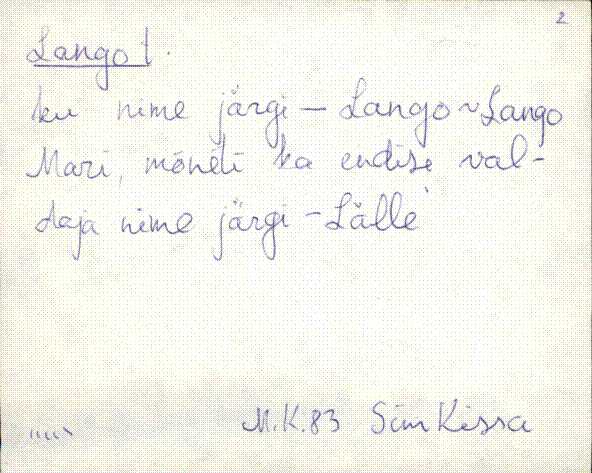 2
Lango t.
ku nime järgi – Lango ~ Lango
Mari, mõneti ka endise val-
daja nime järgi – Lälle
M.K. 83 Siim Kissa